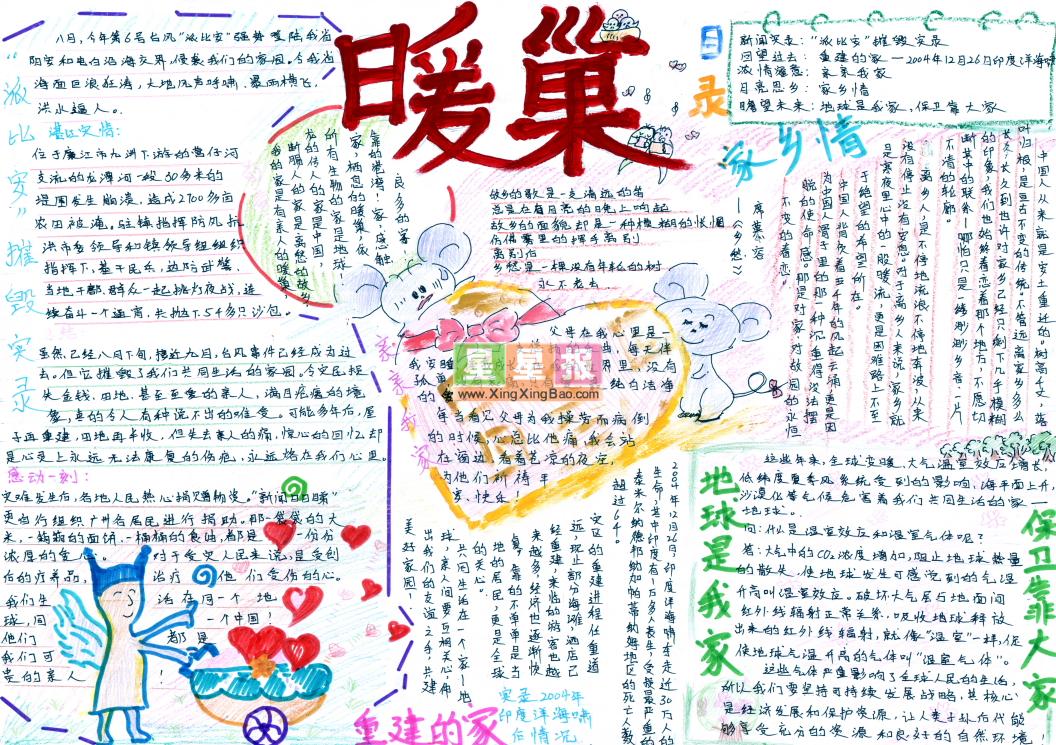 暖巢
目录
新闻实录:“派比安”摧毁实录
回望过去: 重建的家 —2004年12月26日印度洋海啸
浓情海麓: 亲亲我家
月亮思乡: 家乡情
瞻望未来: 地球是我家,保卫靠大家
“派比安”摧毁实录
八月,今年第6号台风“派比安”强势登陆我省
阳安和电白沿海交界,侵袭我们的家园。令我省
海面巨浪狂涛,大地风声呼啸,暴雨横飞,
洪水逼人。
湛江实情:
位于廉江市九洲下游的营仔河
支流的龙潭河一段60多米的
堤围发生崩溃,造成2700多亩
农田被淹。驻镇指挥防风抗
洪市委领导和镇领导组组织
指挥下,基干民兵,边防武警,
当地干部、群众一起挑灯夜战,连
续奋斗一个通宵,共抛下5.4多只沙包。
虽然,已经八月下旬,接近九月,台风事件已经成为过
去。但它摧毁了我们共同生活的家园。令灾民损
失金钱,田地,甚至至爱的亲人,满目疮痍的境
象,真的令人有种说不出的难受。可能多年后,屋
子再重建,田地再丰收,但失去亲人的痛,惊心的回忆却
是心灵上永远无法康复的伤疤,永远烙在我们心里。
感动一刻:
灾难发生后,各地人民热心捐灾捐物资。“新闻日日睇”
更自行组织广州各居民进行捐助。那一袋袋的大
米,一箱箱的面饼,一桶桶的食油,都是一份份
浓厚的爱心。对于受灾人民来说,是受创
后的疗养品,治疗他们受伤的心。
我们生活在同一个地
球,同一个中国!
他们都是
我们可
贵的亲人!
良多的家
靠的港湾!家,感触
家,栖息的暖巢,依
所有生物的家是地球
龙的传人的家是中国
断肠人的家是离愁的故乡
我的家是有亲人的暖巢,
故乡的歌是一支清远的笛
总是在有月亮的晚上响起
故乡的面貌却是一种模糊的怅惘
仿佛雾里的挥手离别
离别后
乡愁是一棵没有年轮的树
永不老去
席慕容
——《乡愁》
家乡情
中国人从来就是安土重迁的。树高千丈,落
叶归根,是亘古不变的传统,不管远离家乡多
久,长久到也许对家乡已经只剩下几乎模糊
的印象,我们也始终眷恋着那个地方,不愿切
断其中的联系,哪怕只是一缕渺渺乡音,一片
不清的轮廓。
亲亲我家
父母在我心里是一
年当看见父母为我操劳而病倒
的时候,心总比他痛,我会站
在窗边,看着苍凉的夜空,
为他们祈祷平
安、快乐!
星草报
www.XingXingBao.com
重建的家
实录2004年
印度洋海啸
后情况
2004年12月26日,印度洋海啸夺走近30万人的
生命,其中印度有1万多人丧生,受损最严重的
泰米尔纳德邦纳加帕蒂纳姆地区的死亡人数
超过6千。
灾区的重建进程任重道
远,现止,部分海滩酒店已
经重建,来临的游客也越
来越多,经济也逐渐恢
复,靠的不单单是当
地的居民,更是全球
的关心。
共同生活在一个家——地
球,亲人间要互相关心,伸
出我们的友谊之手,共建
美好家园!
地球是我家
保卫靠大家
这些年来,全球变暖,大气温室效应增长,
低纬度夏季风系统受到的影响,海平面上升,
沙漠化等气候危害着我们共同生活的家——
地球。
问:什么是温室效应和温室气体呢?
答:大气中的CO2浓度增加,阻止地球热量
的散失,使地球发生可感觉到的气温
升高叫温室效应。破坏大气层与地面间
红外线辐射正常关系,吸收地球释放
出来的红外线辐射,就像“温室”一样,促
使地球气温升高的气体叫“温室气体”。
这些气体严重影响了全球人民的生活,
所以我们要坚持可持续发展战略,其核心
是经济发展和保护资源,让人类子孙后代能
够享受充分的资源和良好的自然环境